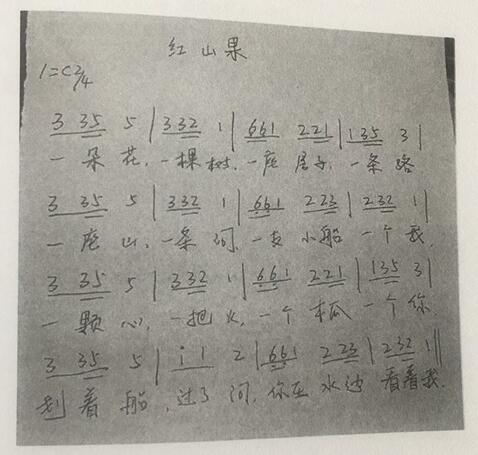 红山果
1=C 2/4
3 35 5 | 332 1 | 661 221 | 135 3 |
一朵花，一棵树，一座房子，一条路
3 35 5 | 332 1 | 661 223 | 232 1 |
一座山，一条河，一支小船一个我，
3 35 5 | 332 1 | 661 221 | 135 3 |
一颗心，一把火，一个木瓜一个你
3 35 5 | i 1 2 | 661 223 | 232 1 ‖
划着船，过了河，你在水边看着我.